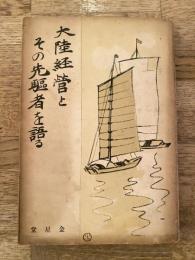 大陸経営と
その先駆者を語る
金星堂